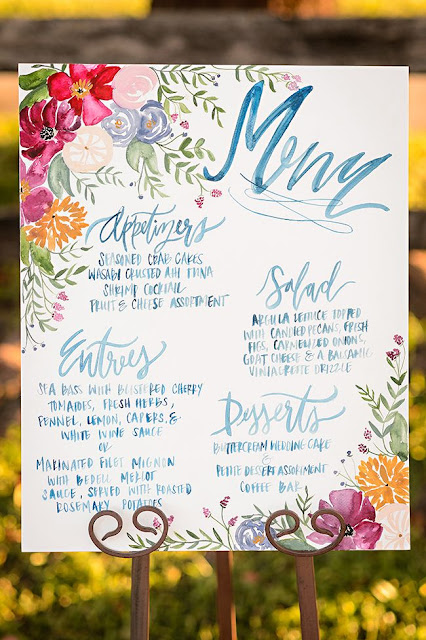 Menu
Appetizers
SEASONED CRAB CAKES
WASABI CRUSTED AHI TUNA
SHRIMP COCKTAIL
FRUIT & CHEESE ASSORTMENT
Entrees
SEA BASS WITH BLISTERED CHERRY
TOMATOES, FRESH HERBS,
FENNEL, LEMON, CAPERS, &
WHITE WINE SAUCE
OR
MARINATED FILET MIGNON
WITH BEDELL MERLOT
SAUCE, SERVED WITH ROASTED
ROSEMARY POTATOES
Salad
ARUGULA LETTUCE TOPPED
WITH CANDIED PECANS, FRESH
FIGS, CARMELIZED ONIONS,
GOAT CHEESE & A BALSAMIC
VINIAGRETTE DRIZZLE
Desserts
BUTTERCREAM WEDDING CAKE
&
PETITE DESERT ASSORTMENT
COFFEE BAR